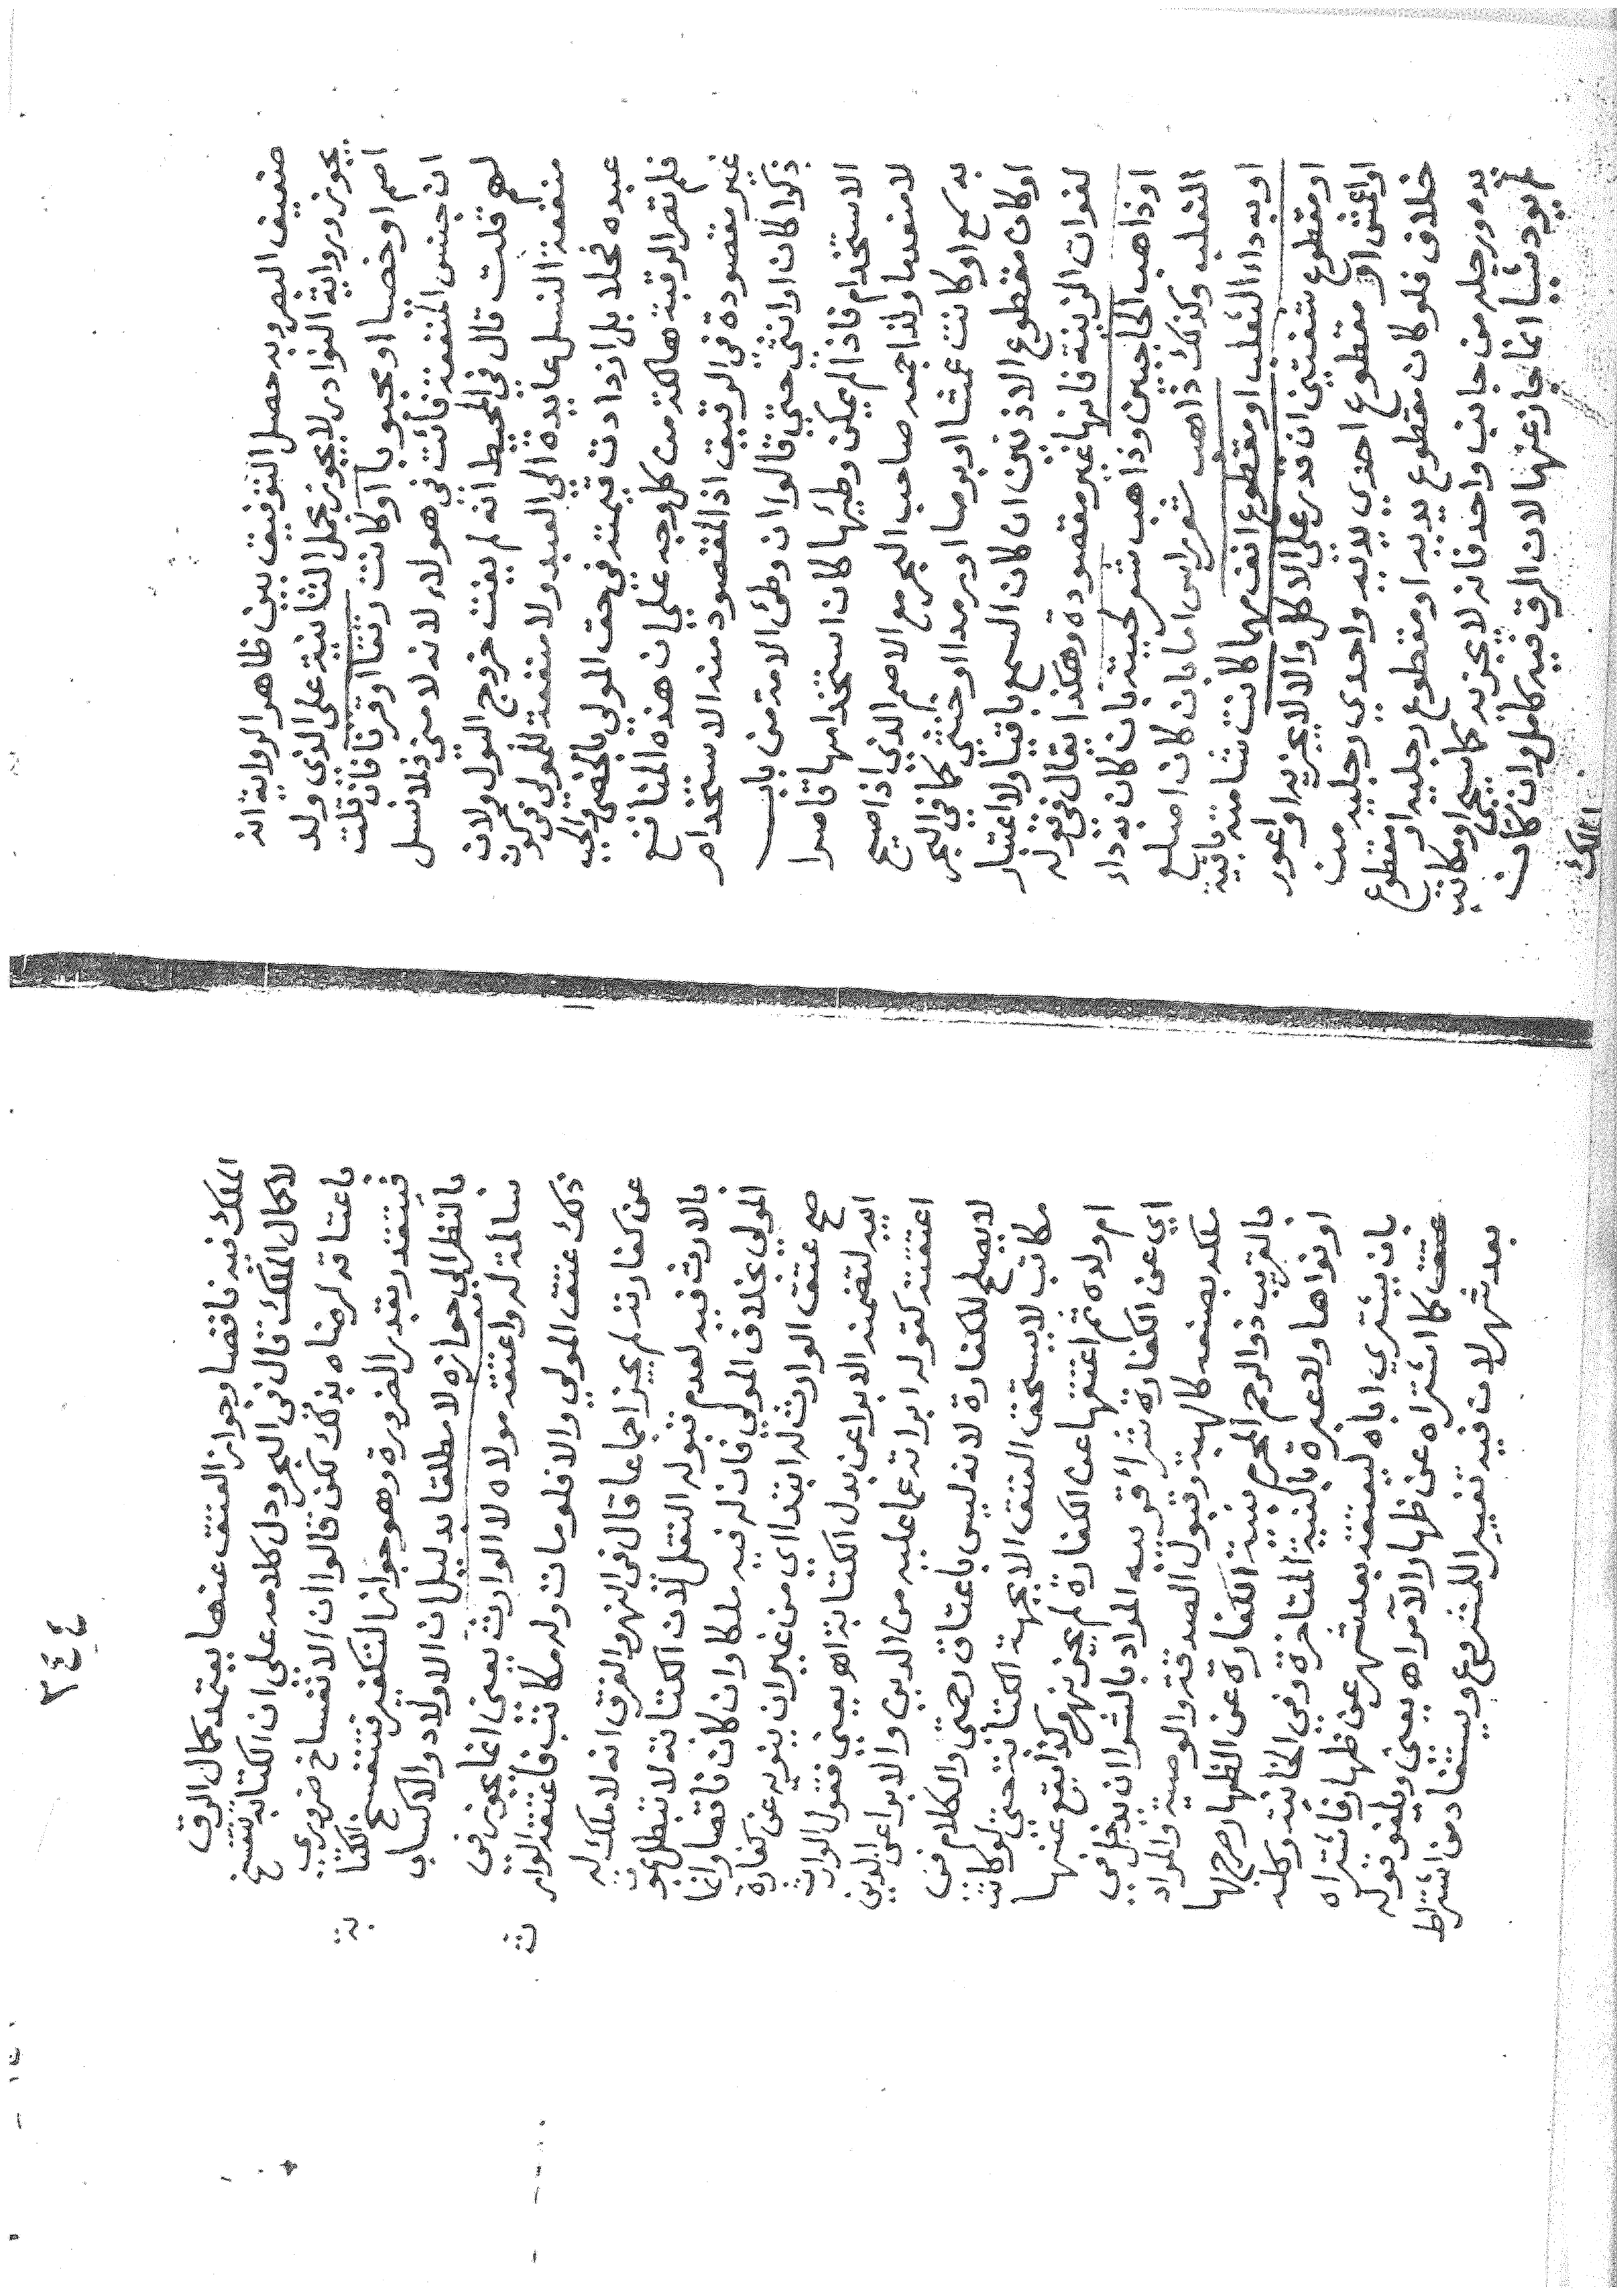 ضعيف البصر وبه حصل التوفيق بين ظاهر الرواية انه
يجوز ورواية النوادر لا يجوز بحمل الثانية على الذى ولد
اصم او خصيا او مجبوبا او كانت رتقا او قرنا فان قلت
ان جنس المنفعة فائت في هولاء لانه لا منى فلا نسل
لهم قلت قال في المحيط انه لم يفت خروج البول ولان
منفعة النسل عايدة الي العبد ولا منفعة للمولى في كون
عبده فحلا بل ازدادت قيمته في حق المولي بالخصي والجب
فلم تصر الرقبة هالكة من كل وجه علي ان هذه المنافع
غير مقصودة في الرقيق اذ المقصود منه الاستخدام
ذكرا كان او انثي حتي قالوا ان وطئ الامة من باب
الاستخدام فاذا لم يمكن وطئها كان استخدامها قاصرا
لا منعدما ولذا جمعه صاحب البحر مع الاصم الذي اذا صيح
به يسمع او كانت عمشا او برصا او رمدا او خنثي كما في البحر
او كان مقطوع الاذنين ان كان السمع باقيا ولا اعتبار
لفوات الزينة فانها غير مقصودة وهكذا يقال في قوله
او ذاهب الحاجبين وذاهب شعر لحيته بان كان به داء
الثعلب وكذلك ذاهب شعر راس اما بان كان اصلع
او به داء الثعلب او مقطوع انف مهما كانت شامته باقية
او مقطوع شفتين ان قدر على الاكل والا لا يجزيه او اعور
او اعمش او مقطوع احدي يديه واحدي رجليه من
خلاف فلو كان مقطوع يديه او مقطوع رجليه او مقطوع
يده ورجله من جانب واحد فانه لا يجزيه كما سيجي او مكاتبه
لم يود شيا انما جاز عنها لان الرق فيه كامل وان كان
الملك
٢٤٤
الملك فيه ناقصا وجواز العتق عنها يعتمد كمال الرق
لا كمال الملك قال في البحر ودل كلامه علي ان الكتابة تنفسخ
باعتاقه لرضاه بذلك لكن قالوا ان الانفساخ ضروري
فيتقدر بقدر الضرورة وهو جواز التكفير فتنفسخ الكتا
بالنظر الي جوازه لا مطلقا بدليل ان الاولاد والاكساب
سالمة له واعتقه مولاه لا الوارث يعني انما يجوز في
ذلك عتق المولي والا فلو مات وله مكاتب فاعتقه الوار
عن كفارته لم يجز اجماعا قال في النهر والفرق انه لا ملك له
بالارث فيه لعدم قبوله النقل لان الكتابة لا تبطل بمو
المولي بخلاف المولي فان له فيه ملكا وان كان ناقصا وانما
صح عتق الوارث له ابتدا اي من غير ان ينويه عن كفارة
ابيه لتضمنه الابرا عن بدل الكتابة اهـ يعني فقول الوارث
اعتقته كقوله ابراته عما عليه من الدين والابرا عن الدين
لا يصلح للكفارة لانه ليس باعتاق رحمتي والكلام في
مكاتب لا يستحق العتق الا بجهة الكتابة حتي لو كاتب
ام ولده ثم اعتقها عن الكفارة لم يجز نهر وكذا يقع عنها
اي عن الكفارة شرأ قريبه المراد بالشرا ان يدخل في
ملكه بصنعه كالهبة وقبول الصدقة والوصية والمراد
بالقريب ذو الرحم المحرم بنية الكفارة عن الظهار مرجها
او نواها ولا عبرة بالنية المتاخرة وفي الخانية وكله
بان يشتري اباه ليعتقه بعد شهر عن ظهاره فاشتراه
عتق كما اشتراه عن ظهار الامراه يعني ويلغو قوله
بعد شهر لان فيه تغيير المشروع ويستفاد من اشتراط